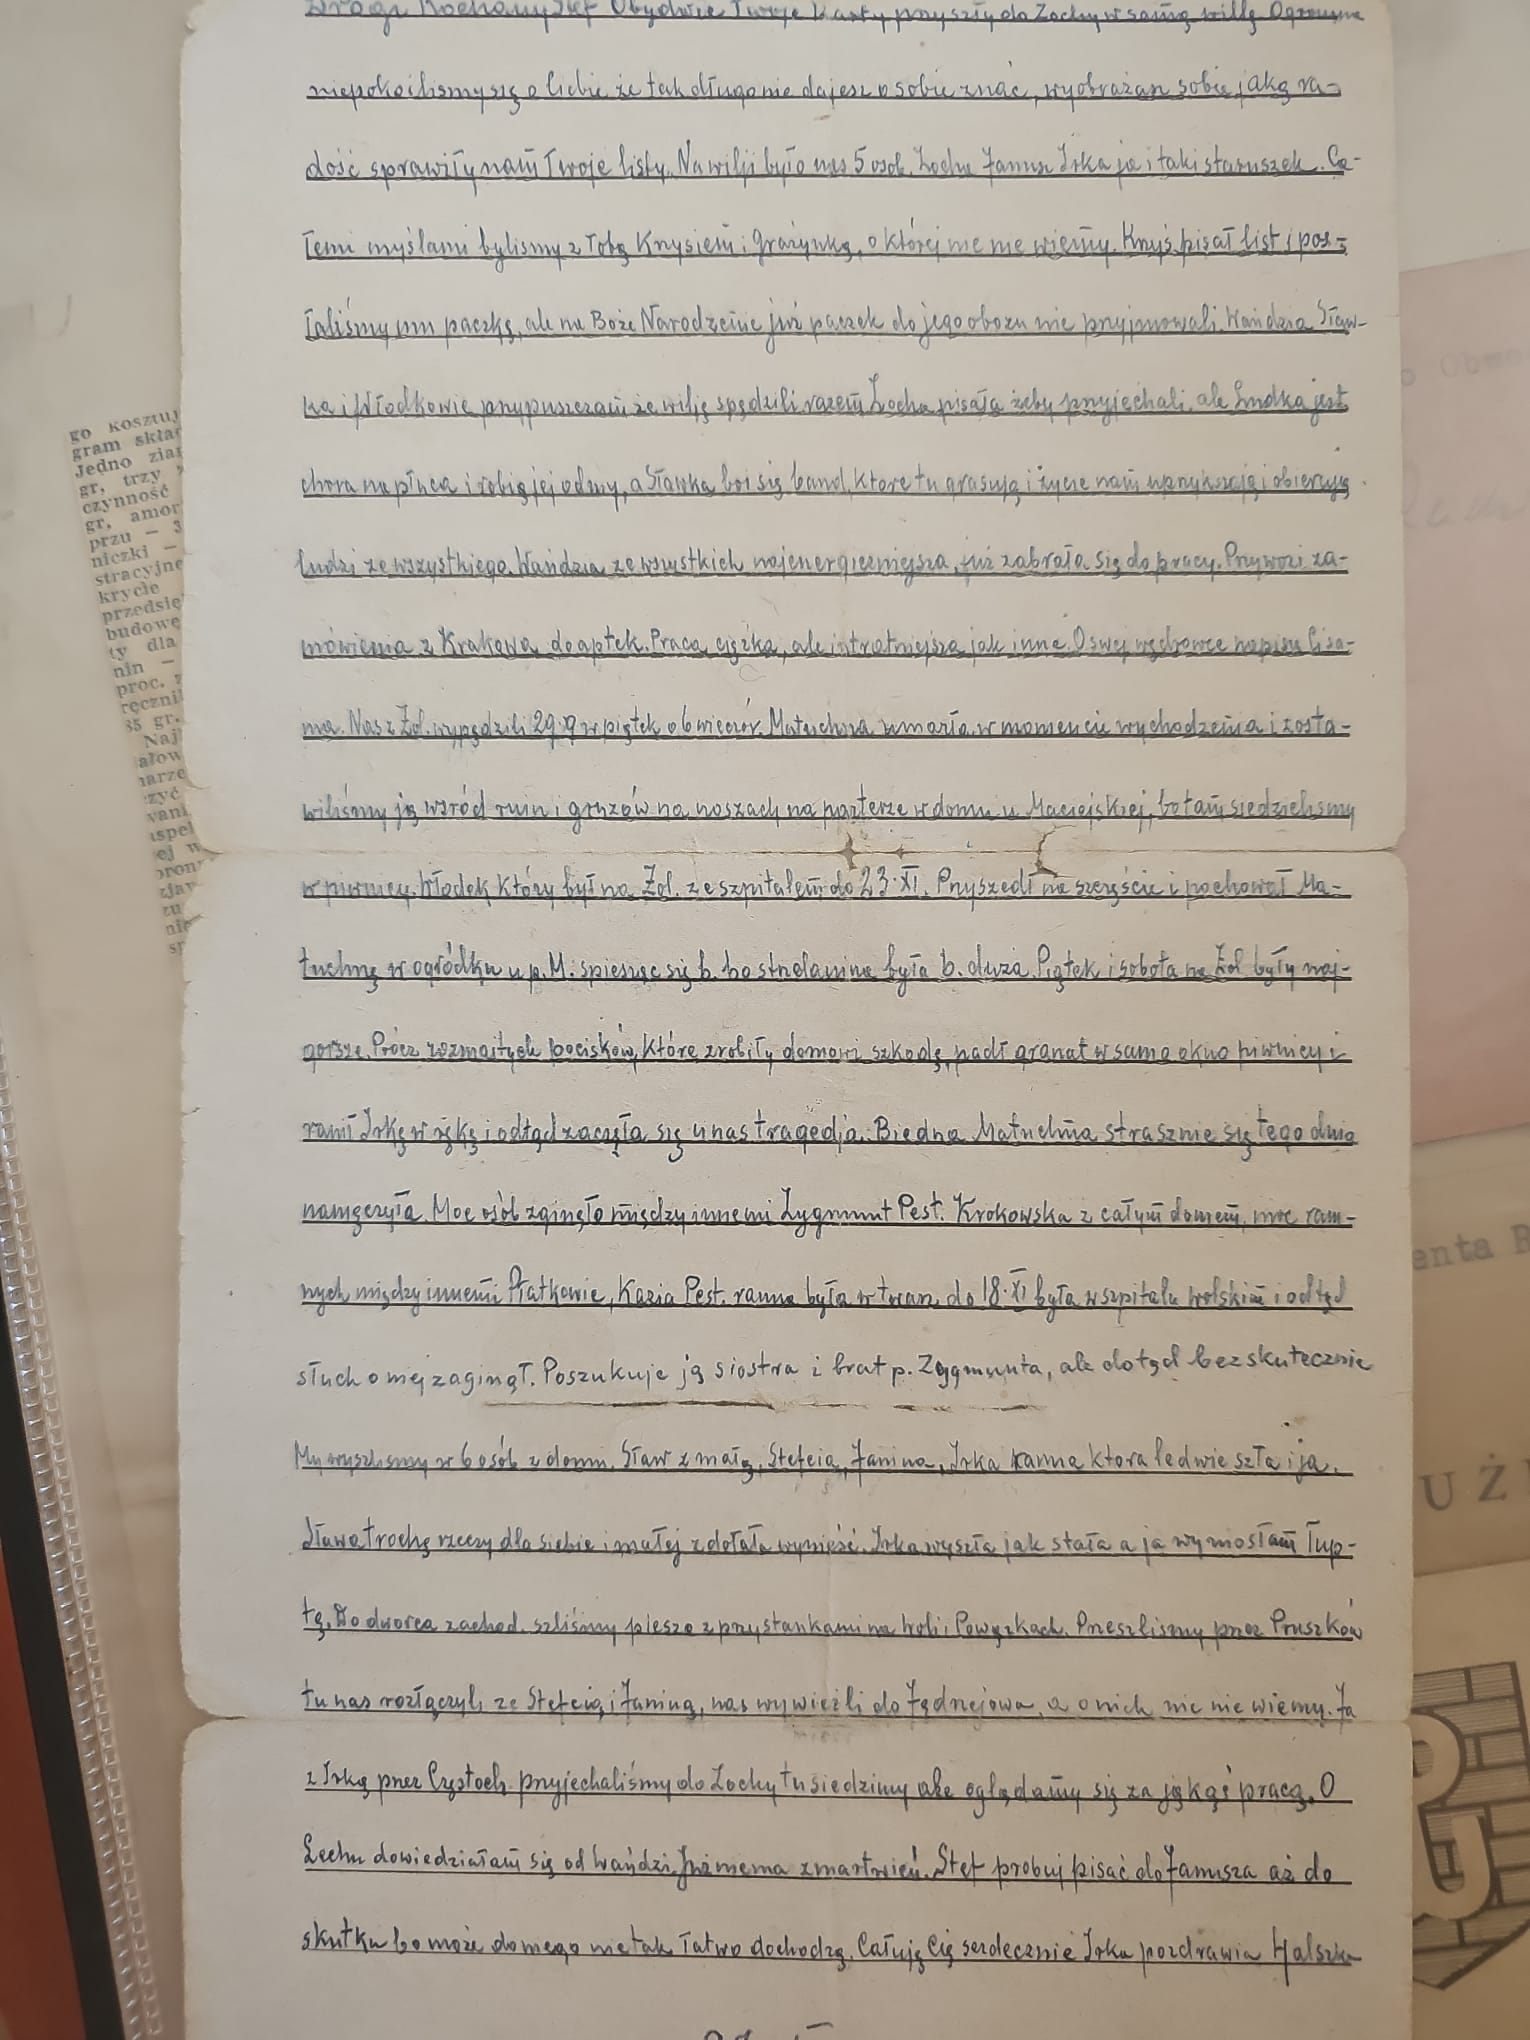 Drogi Kochany Stef Obydwie Twoje karty przyszły do Zochy w samą wilję Ogromnie
niepokoiliśmy się o Ciebie że tak długo nie dajesz o sobie znać, wyobrażasz sobie jaką ra-
dość sprawiły nam Twoje listy. Na wilji było nas 5 osób. Zocha Janusz Irka ja i taki staruszek. Ca-
łemi myślami byliśmy z Tobą Krysiem i Grażynką, o której nic nie wiemy. Kryś pisał list i pos-
łaliśmy mu paczkę, ale na Boże Narodzenie już paczek do jego obozu nie przyjmowali. Wandzia Sław-
ka i Włodkowie przypuszczam że wilję spędzili razem Zocha pisała żeby przyjechali, ale Ludka jest
chora na płuca i robią jej odmy, a Sławka boi się band, które tu grasują i życie nam uprzykszają i obierają
ludzi ze wszystkiego. Wandzia ze wszystkich najenergiczniejsza, już zabrała się do pracy. Przywozi za-
mówienia z Krakowa do aptek. Praca ciężka, ale intratniejsza jak inne. O swej wędrówce napisze Ci sa-
ma. Nas z Żol. wypędzili 29.9 w piątek o 6 wieczór. Matuchna umarła w momencie wychodzenia i zosta-
wiliśmy ją wśród ruin i gruzów na noszach na parterze w domu u Maciejskiej, bo tam siedzieliśmy
w piwnicy. Włodek który był na Żol. ze szpitalem do 23.XI. Przyszedł na szczęście i pochował Ma-
tuchnę w ogródku u p. M. spiesząc się b. bo strzelanina była b. duża. Piątek i sobota na Żol były naj-
gorsze. Prócz rozmaitych pocisków, które zrobiły domowi szkodę, padł granat w samo okno piwnicy i
ranił Irkę w rękę i odtąd zaczęła się u nas tragedja. Biedna Matuchna strasznie się tego dnia
namęczyła. Moc osób zginęło między innemi Zygmunt Pest. Krokowska z całym domem, moc ran-
nych między innemi Piatkowie, Kazia Pest. ranna była w twarz do 18.XI była w szpitalu wolskim i odtąd
słuch o niej zaginął. Poszukuje ją siostra i brat p. Zygmunta, ale dotąd bezskutecznie
My wyszliśmy w 6 osób z domu. Sław z małą, Stefcia, Janina, Irka ranna która ledwie szła i ja.
Sława trochę rzeczy dla siebie i małej zdołała wynieść. Irka wyszła jak stała a ja wyniosłam Tup-
tę. Do dworca zachod. szliśmy pieszo z przystankami na Woli i Powązkach. Przeszliśmy przez Pruszków
tu nas rozłączyli ze Stefcią i Janiną, nas wywieźli do Jędrzejowa, a o nich nic nie wiemy. Ja
z Irką przez Częstoch. przyjechaliśmy do Zochy tu siedzimy ale oglądamy się za jakąś pracą. O
Lechu dowiedziałam się od Wandzi. Już niema zmartwień. Stef probuj pisać do Janusza aż do
skutku bo może do niego nie tak łatwo dochodzą. Całuję Cię serdecznie Irka pozdrawia Halszka
go kosztuj
gram skła
Jedno zia
gr, trzy
czynność
gr, amor
przu — 3
niczki —
stracyjne
krycie
przedsię
budowę
ty dla
nin —
proc. z
ręcznil
35 gr.
Naj
ałow
narze
zyć
vani
spel
ej w
oron
zjav
zu
nie
sp
o Obwo
enta R
UŻ